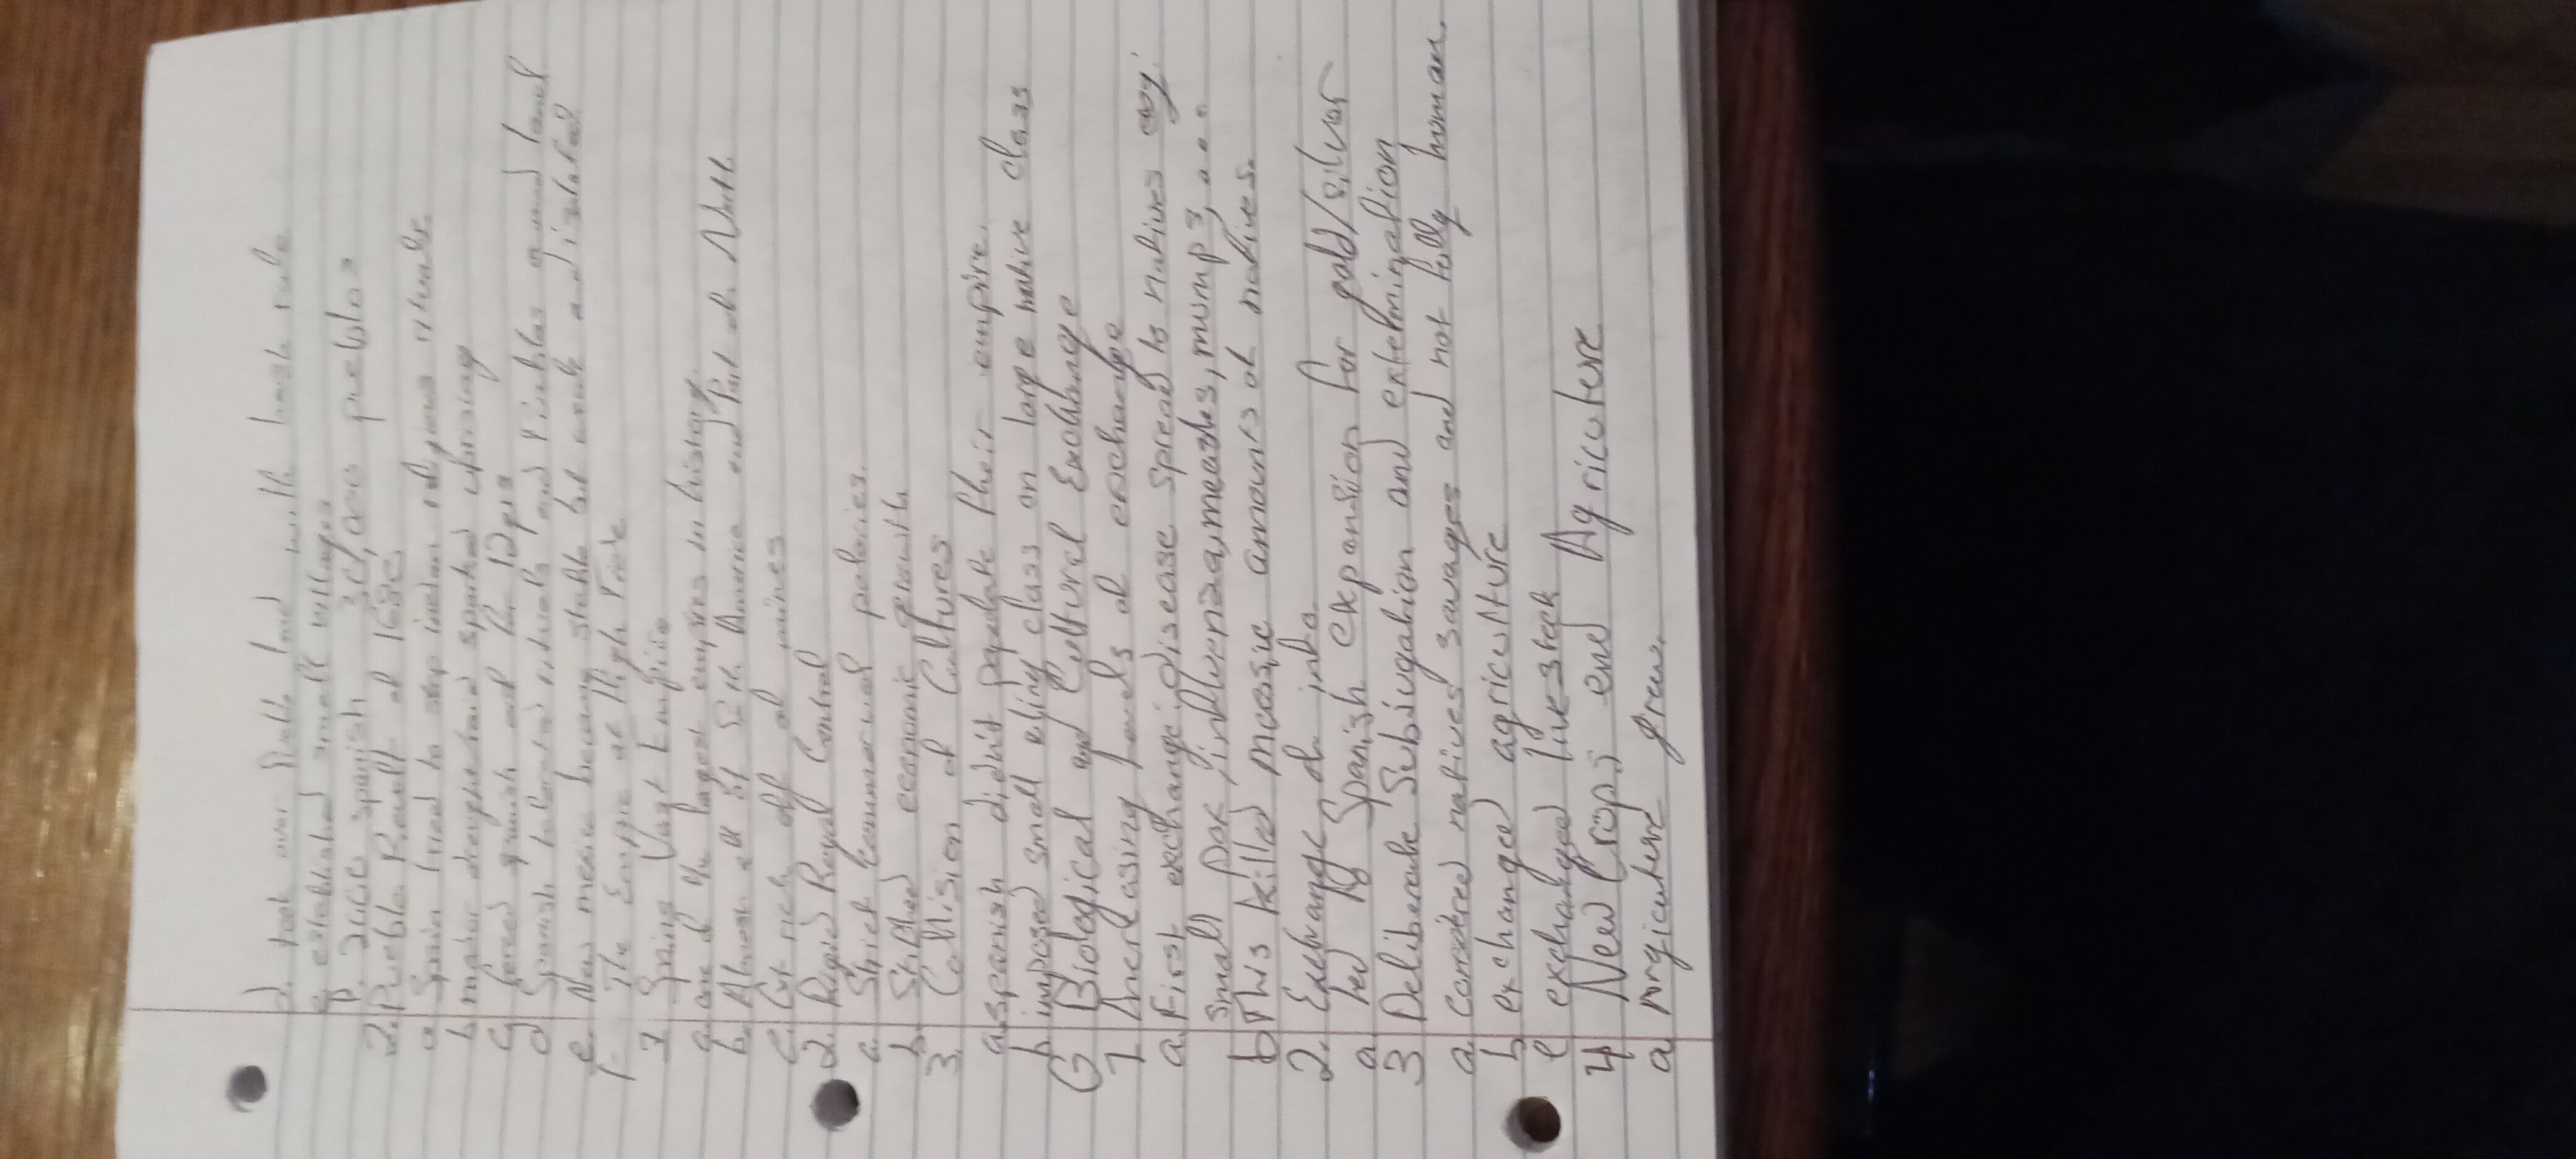 d took over Pueblo land with harsh rule
e established small villages
f. 2000 spanish 30,000 pueblos
2. Pueblo Revolt of 1680
a Spain tried to stop indian religious rituals
b major drought and sparked uprising
c forced spanish out for 12 yrs
d Spanish tolerated rituals and Pueblos owned land
e. New mexico became stable but weak and isolated
F. The Empire at High Tide
1 Spains Vast Empire
a. one of the largest empires in history.
b. Almost all of South America and Part of the North.
c. Got rich off of mines
2. Rigid Royal Control
a. Strict commercial policies.
b. Stifled economic growth
3. Collision of Cultures
a. spanish didn't populate their empire.
b. imposed small ruling class on large native class
G Biological and Cultural Exchange
1 Increasing levels of exchange
a. First exchange: disease spread to natives
small pox, influenza, measles, mumps, ...
b This killed massive amounts of natives.
2. Exchange of info.
a led to Spanish expansion for gold/silver
3 Deliberate Subjugation and extermination
a. considered natives savages and not fully human.
b exchanged agriculture
c exchanged livestock
4 New Crops and Agriculture
a argiculture grew.